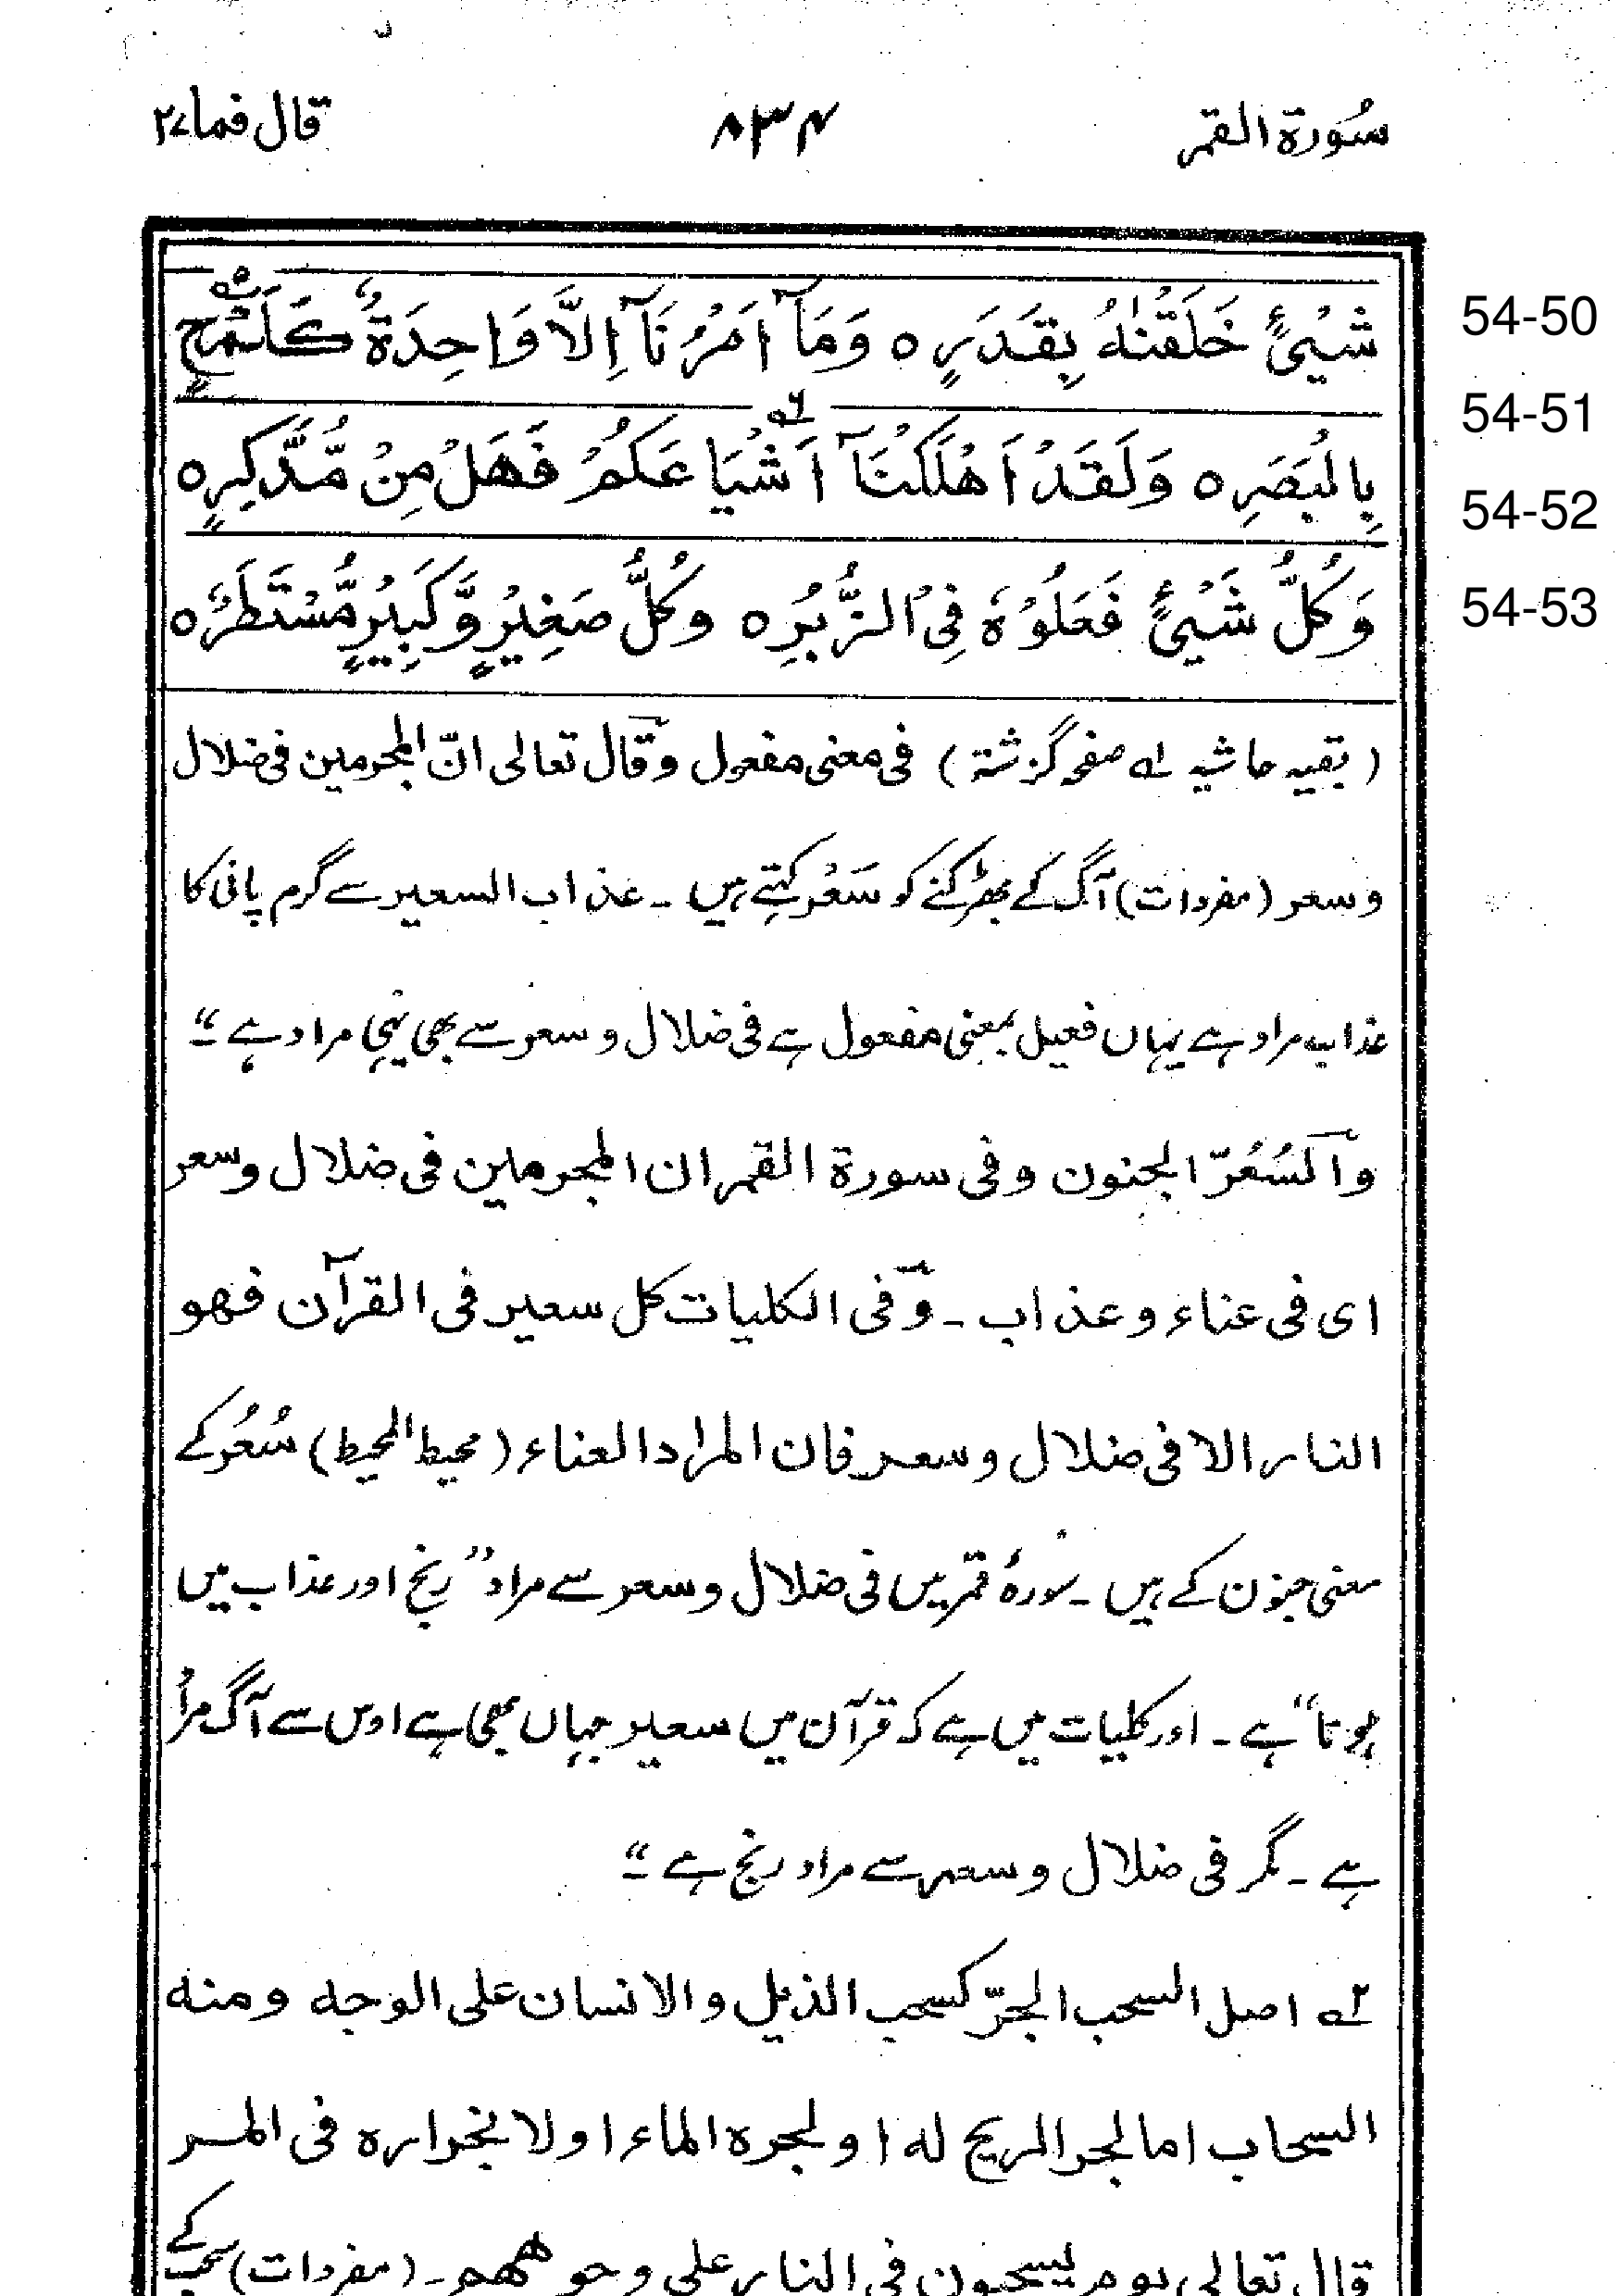 سُورۃ القمر ۸۳۴ قال فما ۲۷
شَیْئٍ خَلَقْنٰهُ بِقَدَرٍ ه وَمَآ اَمْرُنَآ اِلَّا وَاحِدَةٌ كَلَمْحٍ
54-50
بِالْبَصَرِ ه وَلَقَدْ اَهْلَكْنَآ اَشْيَاعَكُمْ فَهَلْ مِنْ مُّدَّكِرٍ ه
54-51
54-52
وَكُلُّ شَیْئٍ فَعَلُوْهُ فِی الزُّبُرِ ه وَكُلُّ صَغِيْرٍ وَّكَبِيْرٍ مُّسْتَطَرٌ ه
54-53
( بقیہ حاشیہ لہ صفحہ گزشتہ ) فی معنی مفعول وقال تعالی انّ المجرمین فی ضلال
وسعر (مفردات) آگ کے بھڑکنے کو سَعْر کہتے ہیں ۔ عذاب السعیر سے گرم پانی کا
عذاب مراد ہے یہاں فعیل بمعنی مفعول ہے فی ضلال وسعر سے بھی یہی مراد ہے ۔“
والسُعُرّ الجنون وفی سورۃ القمر ان المجرمین فی ضلال وسعر
ای فی عناء وعذاب ۔ وفی الکلیات کل سعیر فی القرآن فھو
النار الا فی ضلال وسعر فان المراد العناء (محیط المحیط) سُعُر کے
معنی جنون کے ہیں ۔ سورۂ قمر میں فی ضلال وسعر سے مراد ”رنج اور عذاب میں
ہونا“ ہے ۔ اور کلیات میں ہے کہ قرآن میں سعیر جہاں بھی ہے اوس سے آگ مراد
ہے ۔ مگر فی ضلال وسعر سے مراد رنج ہے ۔“
۲ہ اصل السحب الجرّ کسحب الذیل والانسان علی الوجہ ومنہ
السحاب اما لجر الریح لہ اولجرہ الماء اولانجرارہ فی المر
قال تعالی یوم یسحبون فی النار علی وجوھھم ۔ (مفردات) سحب کے